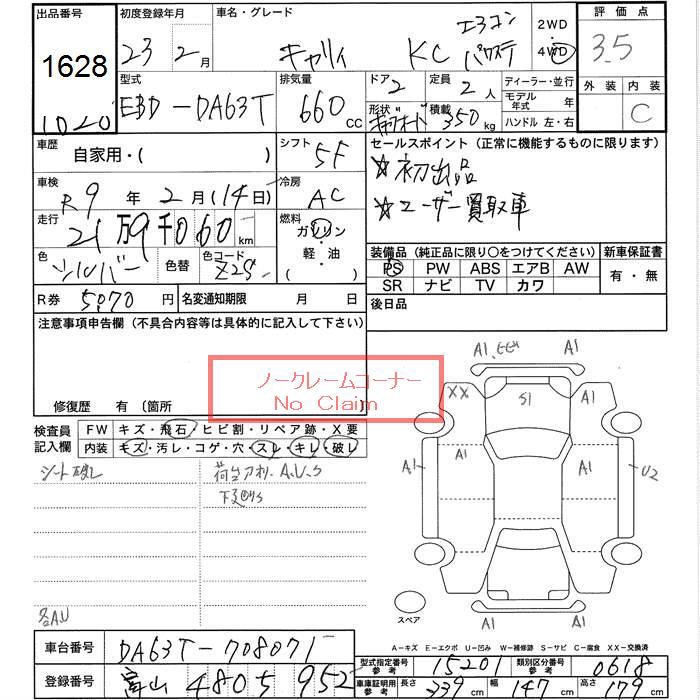 出品番号
1628
1020
初度登録年月
23 2月
車名・グレード
キャリィ KC エアコン パワステ
2WD・
4WD
評価点
3.5
外装 内装
C
型式
EBD-DA63T
排気量
660 cc
ドア
2
定員
2人
形状
積載
350 kg
ディーラー・並行
モデル年式 年
ハンドル 左・右
車歴
自家用・( )
シフト
5F
車検
R9年 2月(14日)
冷房
AC
走行
21万9千060 km
燃料
ガソリン
軽・油
色
シルバー
色替
色コード
Z2S
R券 5070円
名変通知期限 月 日
セールスポイント (正常に機能するものに限ります)
☆初出品
☆ユーザー買取車
装備品 (純正品に限り〇をつけてください)
PS PW ABS エアB AW
SR ナビ TV カワ
新車保証書
有・無
後日品
注意事項申告欄 (不具合内容等は具体的に記入して下さい)
ノークレームコーナー
No Claim
修復歴 有 〔箇所 〕
検査員記入欄
FW キズ・飛石・ヒビ割・リペア跡・X要
内装 キズ・汚レ・コゲ・穴・スレ・キレ・破レ
シート破レ
荷台
A.U.S
下廻りS
各AU
A1 A1
XX S1 A1
A1 A1 A1 U2
スペア
A-キズ E-エクボ U-凹み W-補修跡 S-サビ C-腐食 XX-交換済
車台番号
DA63T-708071
登録番号
富山 480 952
型式指定番号 参考
15201
類別区分番号 参考
0618
車庫証明用 参考
長さ 339 cm 幅 147 cm 高さ 179 cm